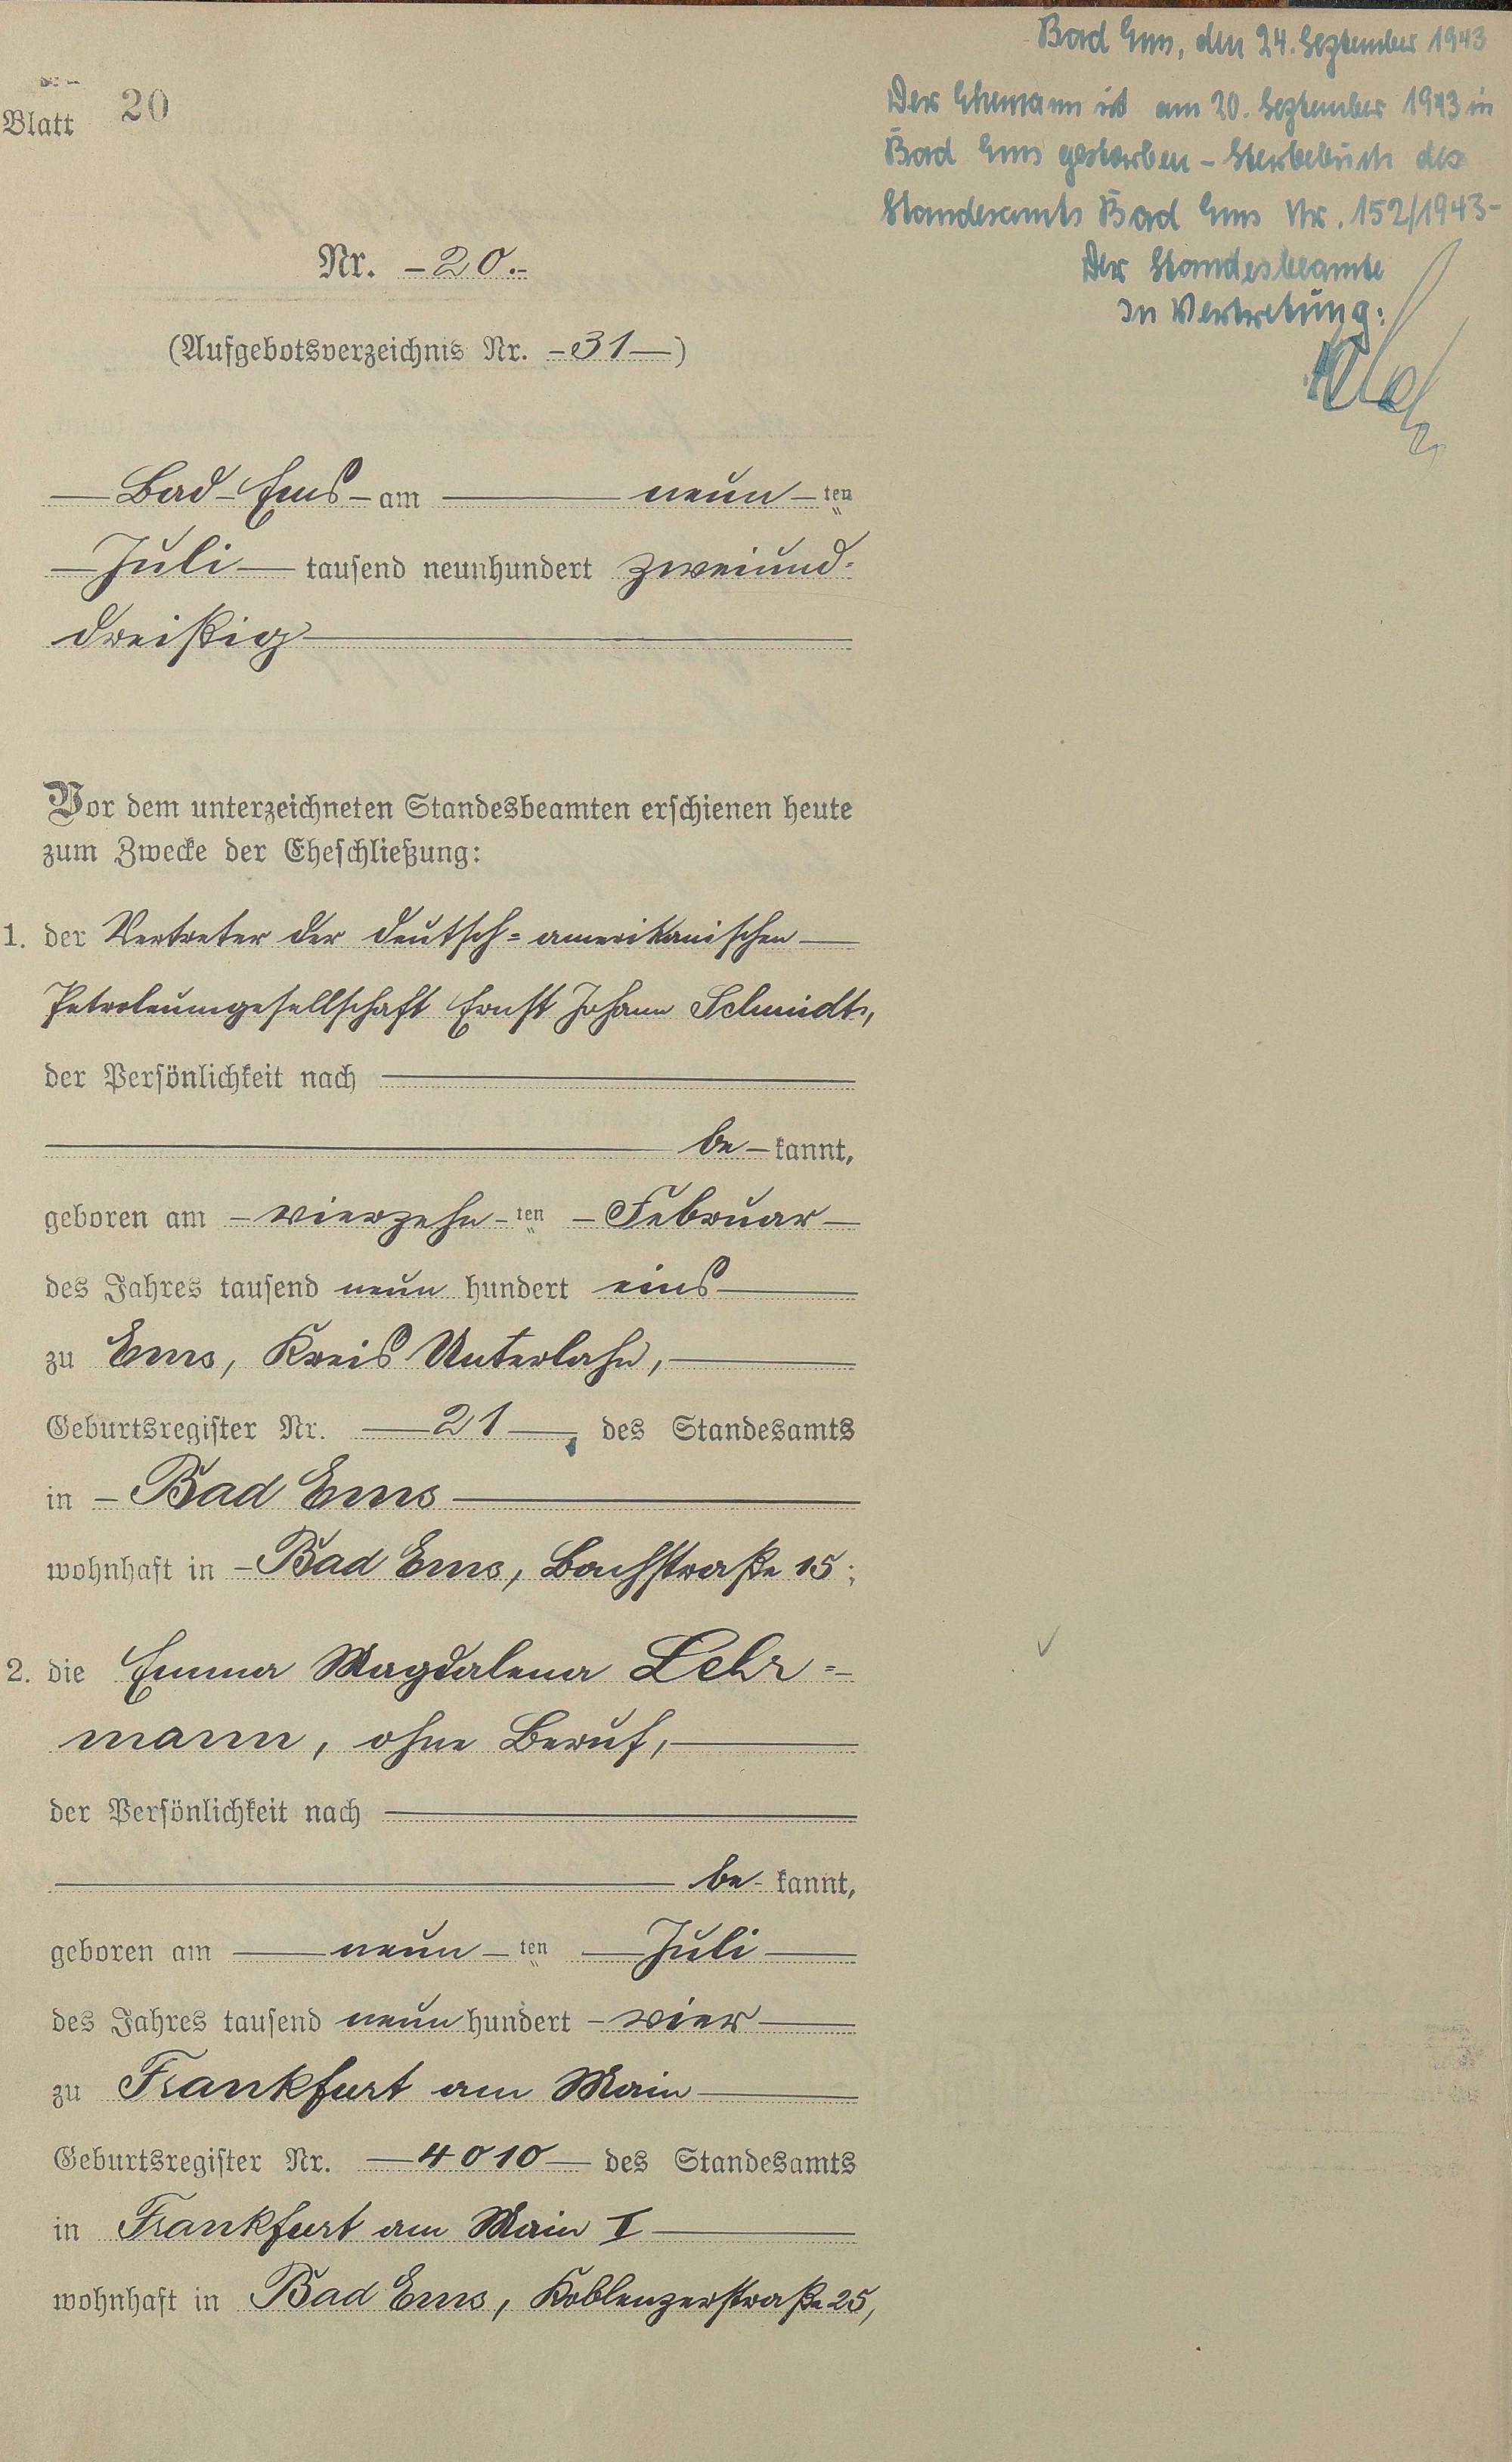 Blatt 20
Bad Ems, den 24. September 1943
Der Ehemann ist am 20. September 1943 in
Bad Ems gestorben - Sterbebuch des
Standesamts Bad Ems Nr. 152/1943-
Der Standesbeamte
In Vertretung:
Nr. -20.-
(Aufgebotsverzeichnis Nr. -31-)
Bad Ems - am neun - ten
Juli tausend neunhundert zweiund-
dreißig
Vor dem unterzeichneten Standesbeamten erschienen heute
zum Zwecke der Eheschließung:
1. der Vertreter der deutsch-amerikanischen
Petroleumgesellschaft Ernst Johann Schmidt,
der Persönlichkeit nach
be-kannt,
geboren am - vierzehn - ten - Februar
des Jahres tausend neun hundert eins
zu Ems, Kreis Unterlahn,
Geburtsregister Nr. 21, des Standesamts
in - Bad Ems
wohnhaft in - Bad Ems, Bachstraße 15;
2. die Emma Magdalena Lehr-
mann, ohne Beruf,
der Persönlichkeit nach
be-kannt,
geboren am neun - ten Juli
des Jahres tausend neun hundert - vier
zu Frankfurt am Main
Geburtsregister Nr. 4010 des Standesamts
in Frankfurt am Main I
wohnhaft in Bad Ems, Koblenzerstraße 25,